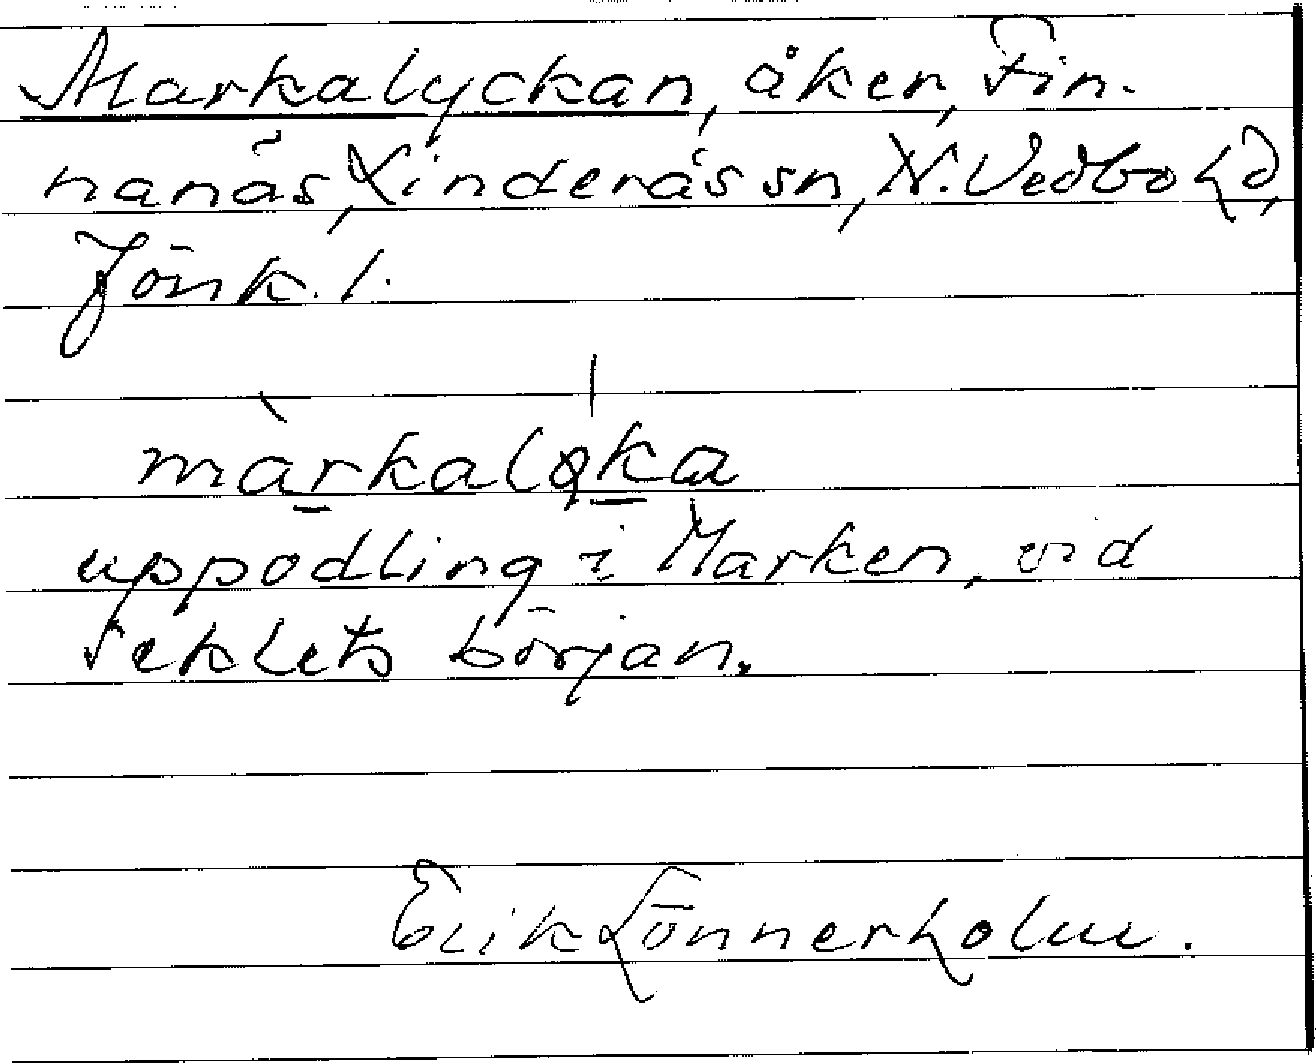 Markalyckan, åker, Fin-
nanäs, Linderås sn, N. Vedbo hd,
Jönk. l.
uppodling i Marken, vid
seklets början.
Erik Lönnerholm.